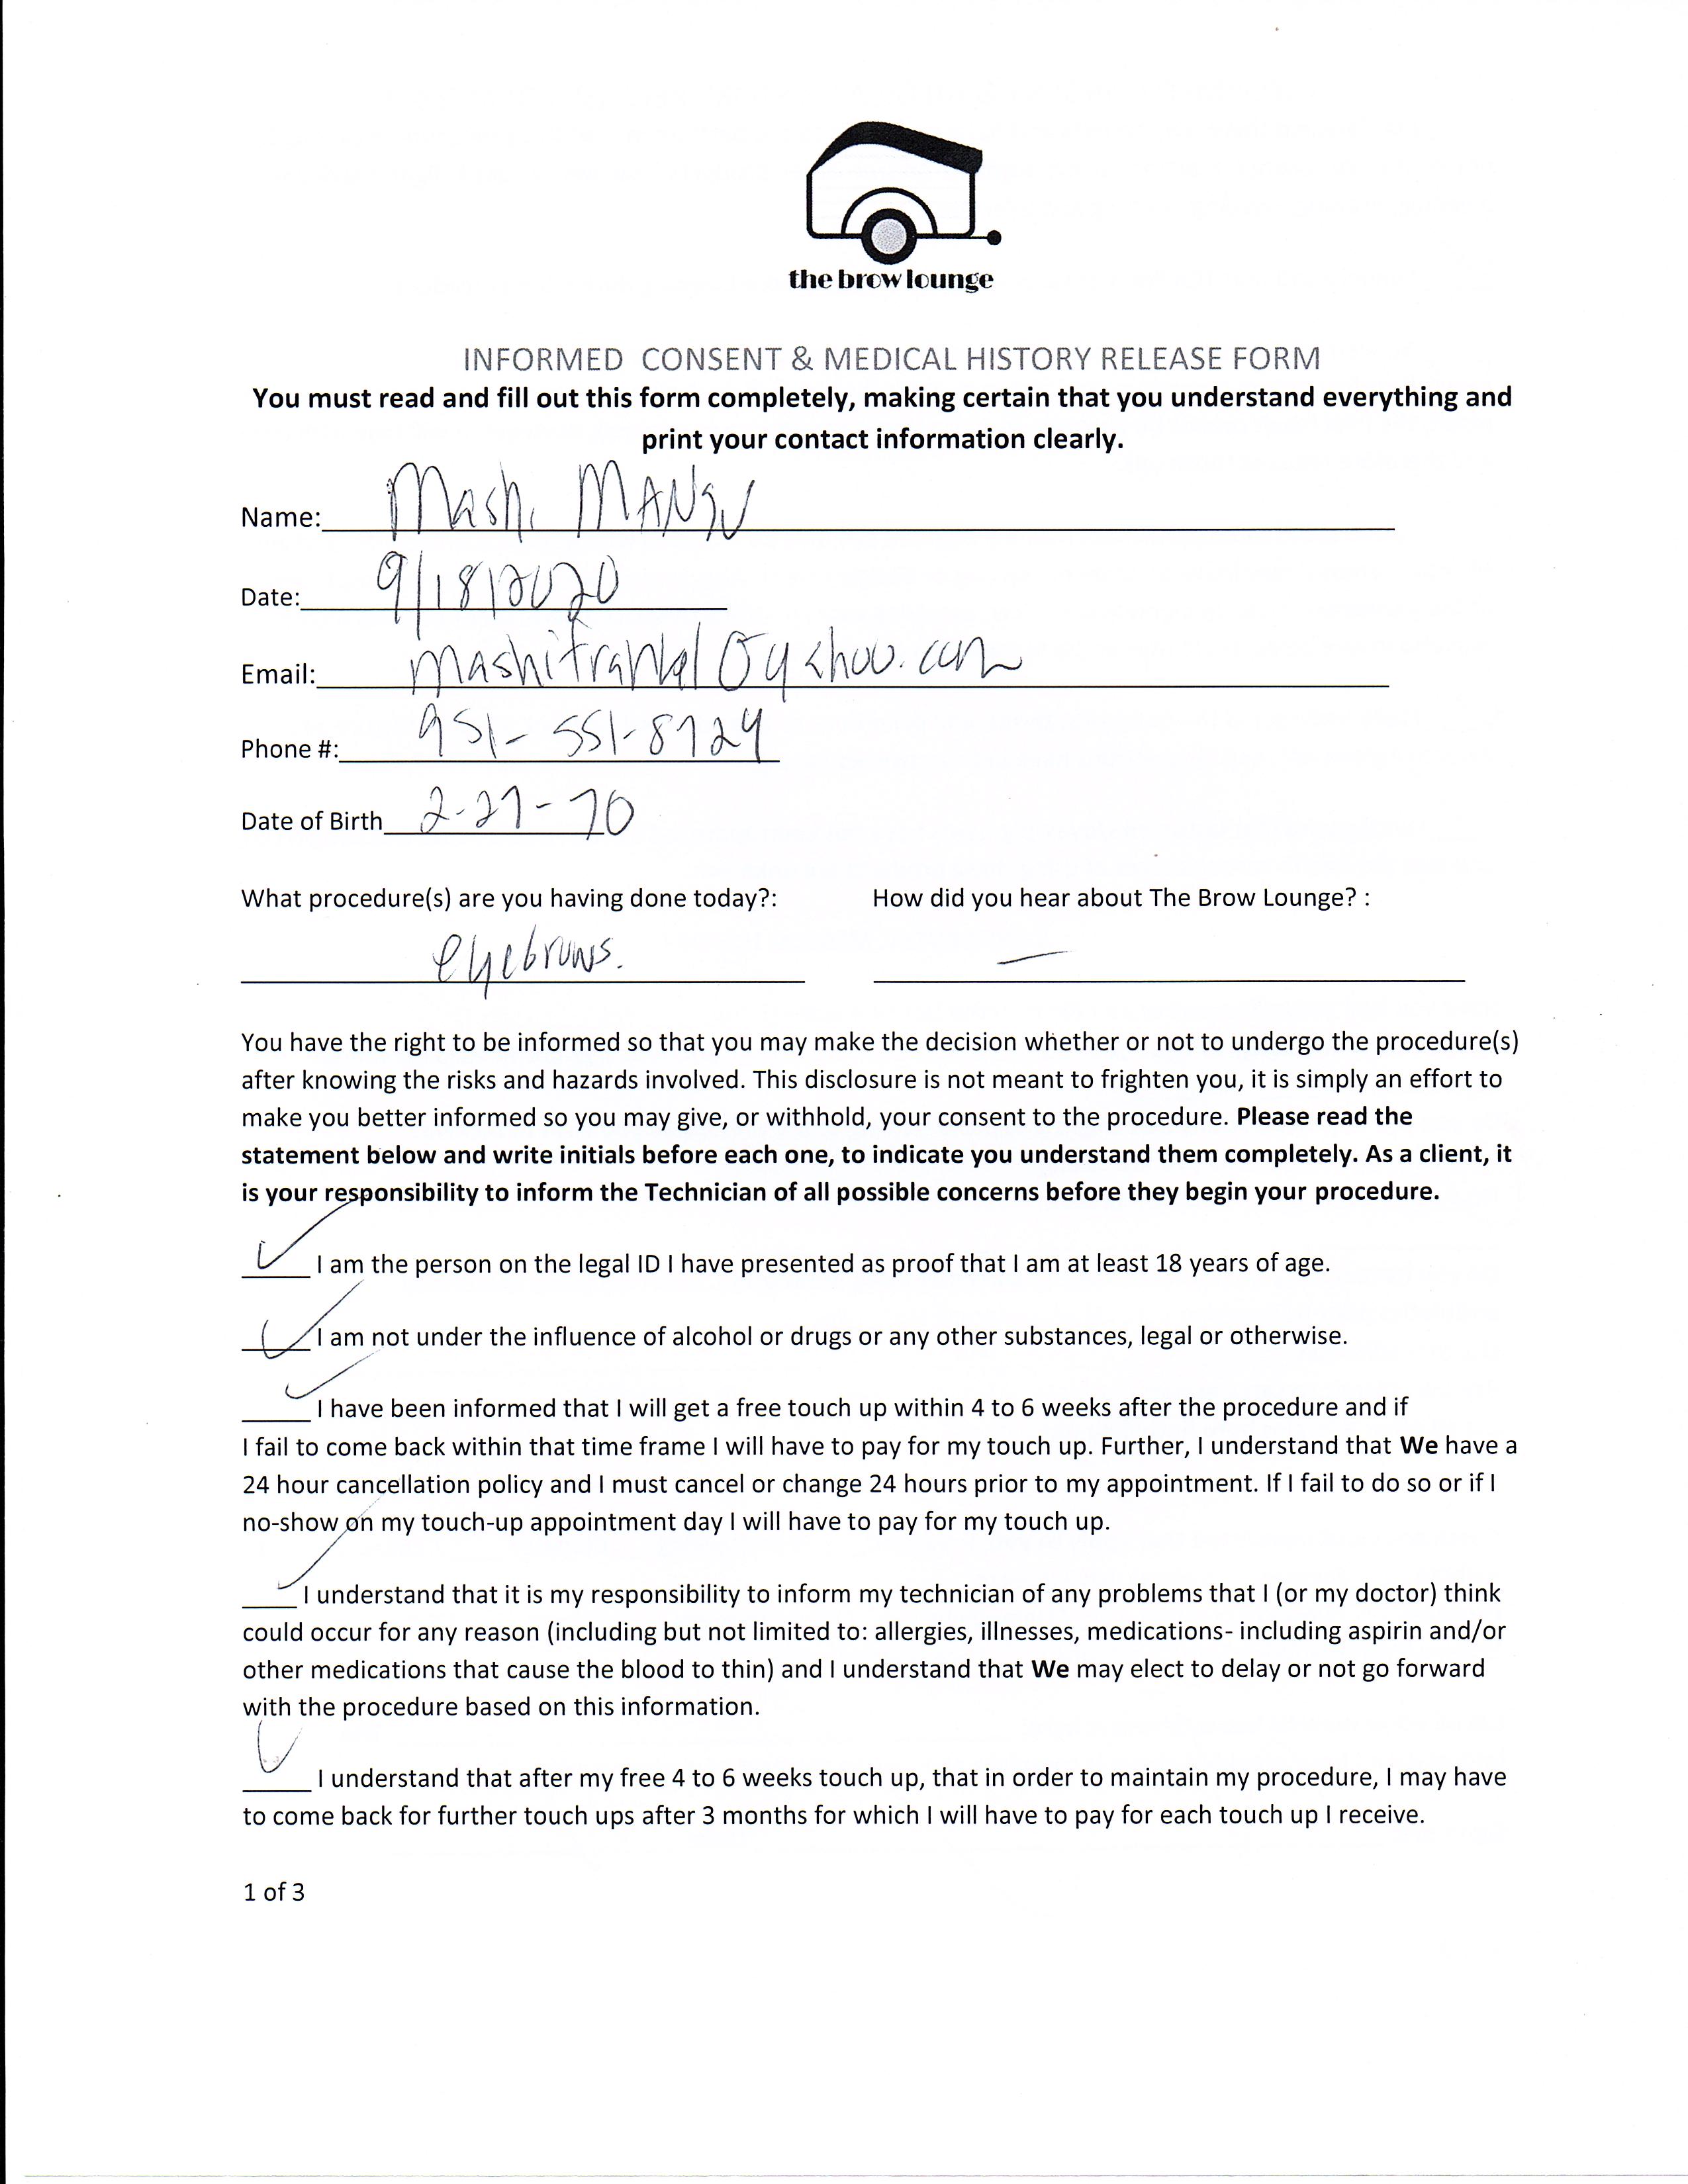 the brow lounge
INFORMED CONSENT & MEDICAL HISTORY RELEASE FORM
You must read and fill out this form completely, making certain that you understand everything and
print your contact information clearly.
Name: Mashi
Date: 9/18/2020
Email:
Phone #: 951-551-8724
Date of Birth 2-27-70
What procedure(s) are you having done today?: How did you hear about The Brow Lounge? :
eyebrows. —
You have the right to be informed so that you may make the decision whether or not to undergo the procedure(s)
after knowing the risks and hazards involved. This disclosure is not meant to frighten you, it is simply an effort to
make you better informed so you may give, or withhold, your consent to the procedure. Please read the
statement below and write initials before each one, to indicate you understand them completely. As a client, it
is your responsibility to inform the Technician of all possible concerns before they begin your procedure.
I am the person on the legal ID I have presented as proof that I am at least 18 years of age.
I am not under the influence of alcohol or drugs or any other substances, legal or otherwise.
I have been informed that I will get a free touch up within 4 to 6 weeks after the procedure and if
I fail to come back within that time frame I will have to pay for my touch up. Further, I understand that We have a
24 hour cancellation policy and I must cancel or change 24 hours prior to my appointment. If I fail to do so or if I
no-show on my touch-up appointment day I will have to pay for my touch up.
I understand that it is my responsibility to inform my technician of any problems that I (or my doctor) think
could occur for any reason (including but not limited to: allergies, illnesses, medications- including aspirin and/or
other medications that cause the blood to thin) and I understand that We may elect to delay or not go forward
with the procedure based on this information.
I understand that after my free 4 to 6 weeks touch up, that in order to maintain my procedure, I may have
to come back for further touch ups after 3 months for which I will have to pay for each touch up I receive.
1 of 3